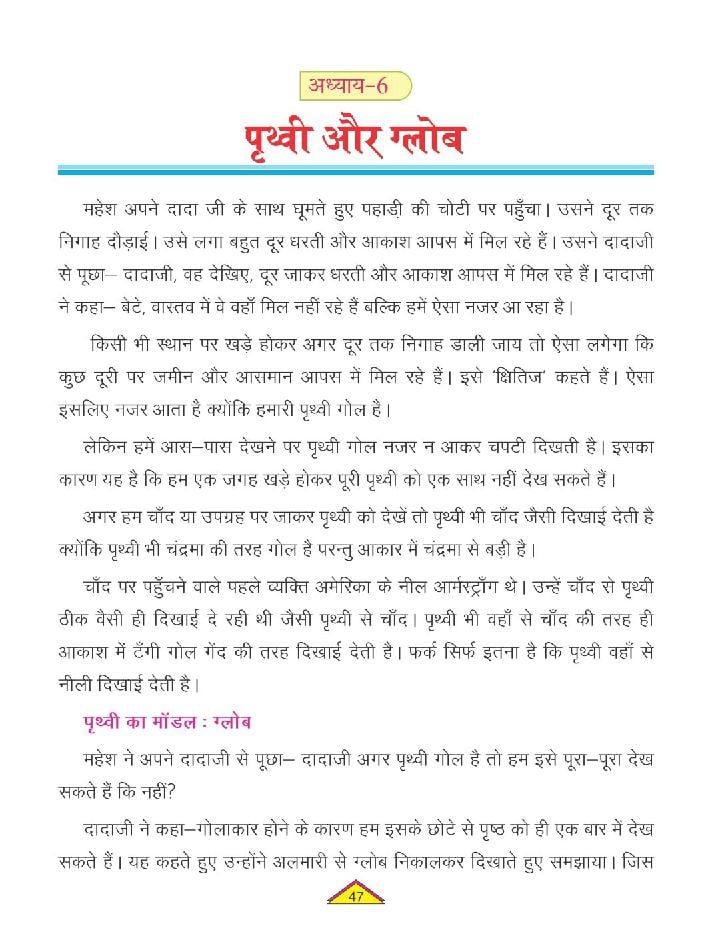 अध्याय-6
पृथ्वी और ग्लोब
महेश अपने दादा जी के साथ घूमते हुए पहाड़ी की चोटी पर पहुँचा। उसने दूर तक
निगाह दौड़ाई। उसे लगा बहुत दूर धरती और आकाश आपस में मिल रहे हैं। उसने दादाजी
से पूछा– दादाजी, वह देखिए, दूर जाकर धरती और आकाश आपस में मिल रहे हैं। दादाजी
ने कहा– बेटे, वास्तव में वे वहाँ मिल नहीं रहे हैं बल्कि हमें ऐसा नजर आ रहा है।
किसी भी स्थान पर खड़े होकर अगर दूर तक निगाह डाली जाय तो ऐसा लगेगा कि
कुछ दूरी पर जमीन और आसमान आपस में मिल रहे हैं। इसे ‘क्षितिज’ कहते हैं। ऐसा
इसलिए नजर आता है क्योंकि हमारी पृथ्वी गोल है।
लेकिन हमें आस–पास देखने पर पृथ्वी गोल नजर न आकर चपटी दिखती है। इसका
कारण यह है कि हम एक जगह खड़े होकर पूरी पृथ्वी को एक साथ नहीं देख सकते हैं।
अगर हम चाँद या उपग्रह पर जाकर पृथ्वी को देखें तो पृथ्वी भी चाँद जैसी दिखाई देती है
क्योंकि पृथ्वी भी चंद्रमा की तरह गोल है परन्तु आकार में चंद्रमा से बड़ी है।
चाँद पर पहुँचने वाले पहले व्यक्ति अमेरिका के नील आर्मस्ट्राँग थे। उन्हें चाँद से पृथ्वी
ठीक वैसी ही दिखाई दे रही थी जैसी पृथ्वी से चाँद। पृथ्वी भी वहाँ से चाँद की तरह ही
आकाश में टँगी गोल गेंद की तरह दिखाई देती है। फर्क सिर्फ इतना है कि पृथ्वी वहाँ से
नीली दिखाई देती है।
पृथ्वी का मॉडल : ग्लोब
महेश ने अपने दादाजी से पूछा– दादाजी अगर पृथ्वी गोल है तो हम इसे पूरा–पूरा देख
सकते हैं कि नहीं?
दादाजी ने कहा–गोलाकार होने के कारण हम इसके छोटे से पृष्ठ को ही एक बार में देख
सकते हैं। यह कहते हुए उन्होंने अलमारी से ग्लोब निकालकर दिखाते हुए समझाया। जिस
47